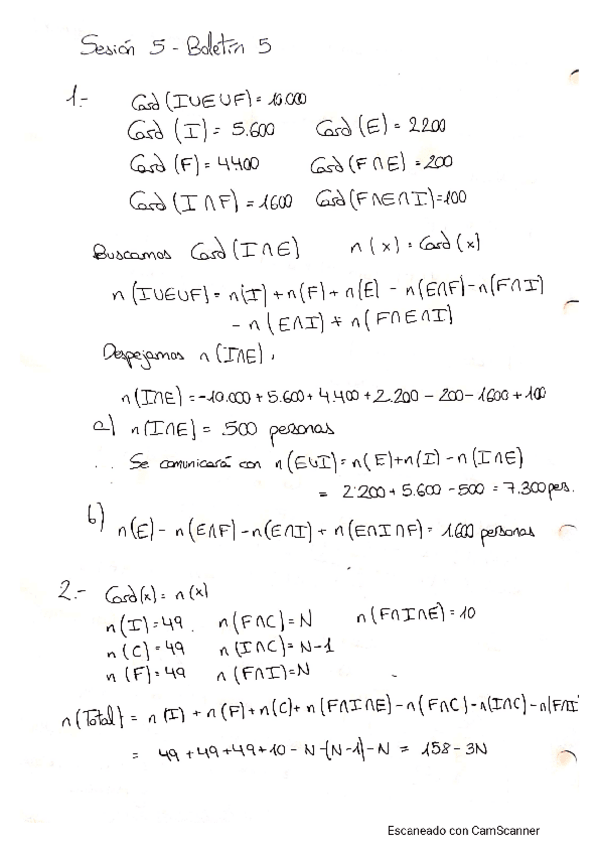 Sesión 5 - Boletín 5
1.- Card (I∪E∪F) = 10.000
Card (I) = 5.600 Card (E) = 2200
Card (F) = 4400 Card (F∩E) = 200
Card (I∩F) = 1600 Card (F∩E∩I) = 100
Buscamos Card (I∩E) n(x) = Card (x)
n (I∪E∪F) = n(I) + n(F) + n(E) - n(E∩F) - n(F∩I)
- n(E∩I) + n(F∩E∩I)
Despejamos n(I∩E),
n(I∩E) = -10.000 + 5.600 + 4.400 + 2.200 - 200 - 1600 + 100
a) n(I∩E) = 500 personas
Se comunicará con n(E∪I) = n(E) + n(I) - n(I∩E)
= 2.200 + 5.600 - 500 = 7.300 pers.
b) n(E) - n(E∩F) - n(E∩I) + n(E∩I∩F) = 1.600 personas
2.- Card(x) = n(x)
n(I) = 49 n(F∩C) = N n(F∩I∩E) = 10
n(C) = 49 n(I∩C) = N-1
n(F) = 49 n(F∩I) = N
n(Total) = n(I) + n(F) + n(C) + n(F∩I∩E) - n(F∩C) - n(I∩C) - n(F∩I
= 49 + 49 + 49 + 10 - N - (N-1) - N = 158 - 3N
Escaneado con CamScanner